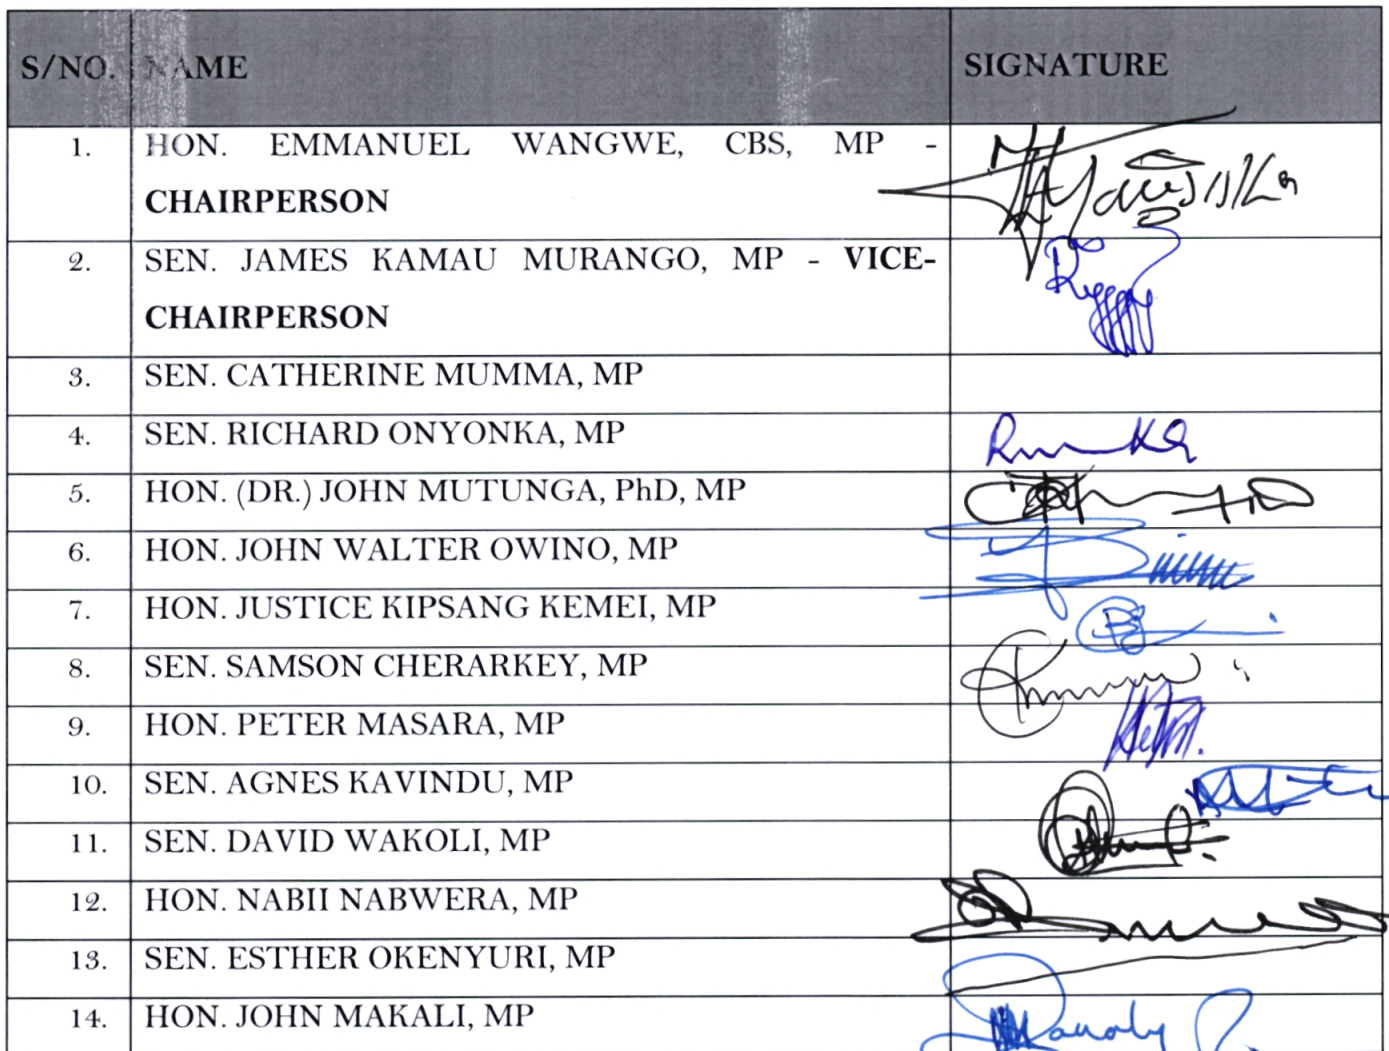 S/NO. NAME SIGNATURE
1. HON. EMMANUEL WANGWE, CBS, MP -
CHAIRPERSON
2. SEN. JAMES KAMAU MURANGO, MP - VICE-
CHAIRPERSON
3. SEN. CATHERINE MUMMA, MP
4. SEN. RICHARD ONYONKA, MP
5. HON. (DR.) JOHN MUTUNGA, PhD, MP
6. HON. JOHN WALTER OWINO, MP
7. HON. JUSTICE KIPSANG KEMEI, MP
8. SEN. SAMSON CHERARKEY, MP
9. HON. PETER MASARA, MP
10. SEN. AGNES KAVINDU, MP
11. SEN. DAVID WAKOLI, MP
12. HON. NABII NABWERA, MP
13. SEN. ESTHER OKENYURI, MP
14. HON. JOHN MAKALI, MP